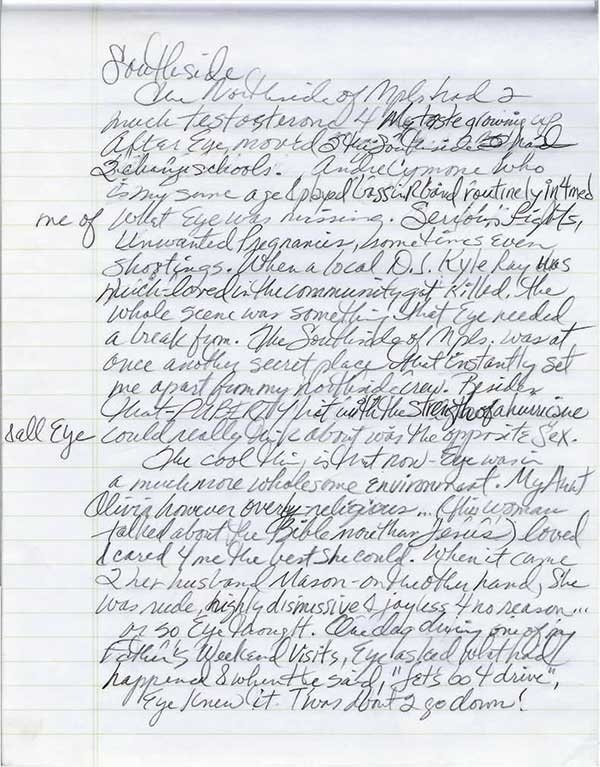 Southside
The Northside of Mpls had 2
much testosterone 4 My taste growing up
After Eye moved 2 the Southside & had
2 change schools. André Cymone who
is my same age & played bass in R band routinely in4med
me of what Eye was missing. Serious Fights,
Unwanted Pregnancies, sometimes even
shootings. When a local D.J. Kyle Ray was
much-loved in the community got killed, the
whole scene was something that Eye needed
a break from. The Southside of Mpls. was at
once another secret place that instantly set
me apart from my northside crew. Besides
that-PUBERTY hit with the strength of a hurricane
& all Eye could really think about was the opposite Sex.
The cool thing is that now-Eye was in
a much more wholesome environment. My Aunt
Olivia however overly religious... (this woman
talked about the Bible more than Jesus) loved
& cared 4 me the best she could. When it came
2 her husband Mason-on the other hand, She
was rude, highly dismissive & joyless 4 no reason...
or so Eye thought. One day during one of my
Father's Weekend Visits, Eye asked what had
happened & when he said, "Let's go 4 drive",
Eye Knew it. Twas about 2 go down!